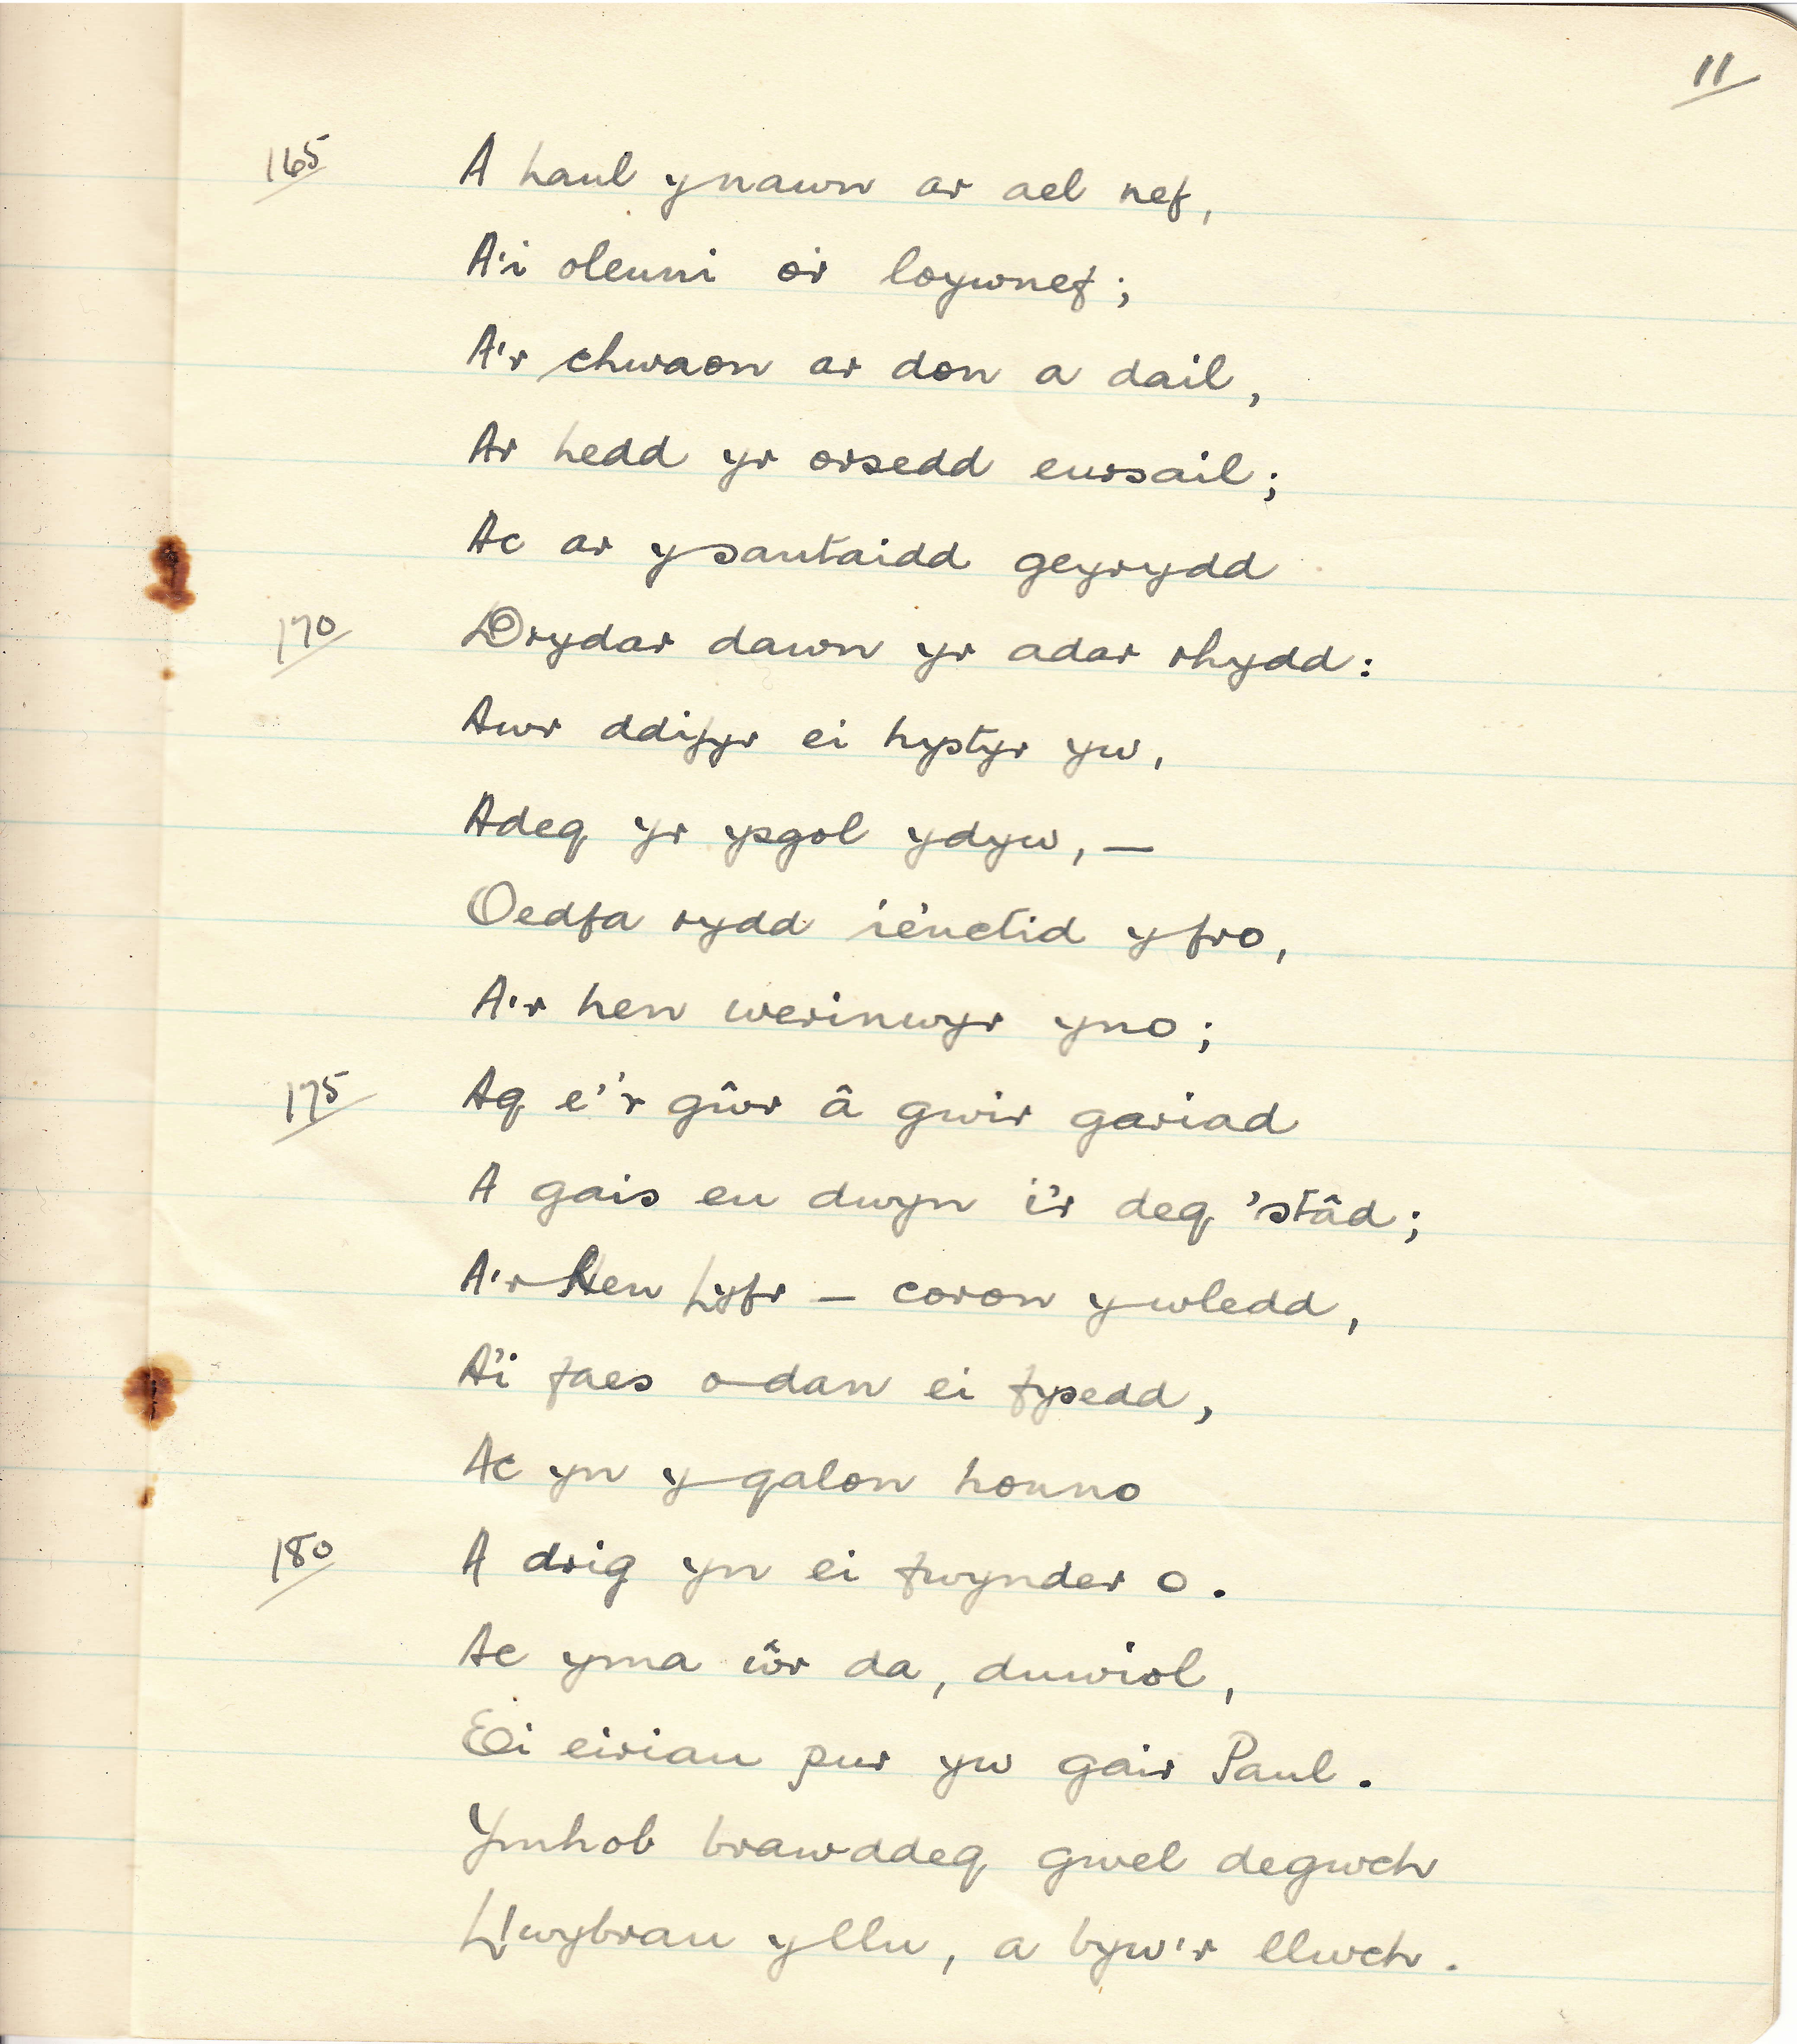 11
165 A haul ynawn ar ael nef,
A'i oleuni o'r loywnef;
A'r chwaon ar don a dail,
Ar hedd yr orsedd eursail;
Ac ar y santaidd geyrydd
170 Drydar dawn yr adar rhydd:
Awr ddifyr ei hystyr yw,
Adeg yr ysgol ydyw, —
Oedfa rydd iènctid y fro,
A'r hen werinwyr yno;
175 Ag e''r gŵr â gwir gariad
A gais eu dwyn i'r deg 'stâd;
A'r Hen Lyfr — coron y wledd,
A'i faes o dan ei fysedd,
Ac yn y galon honno
180 A drig yn ei fwynder o.
Ac yma ŵr da, duwiol,
Ei eiriau pur yw gair Paul.
Ymhob brawddeg gwel degwch
Llwybrau y llu, a byw'r llwch.